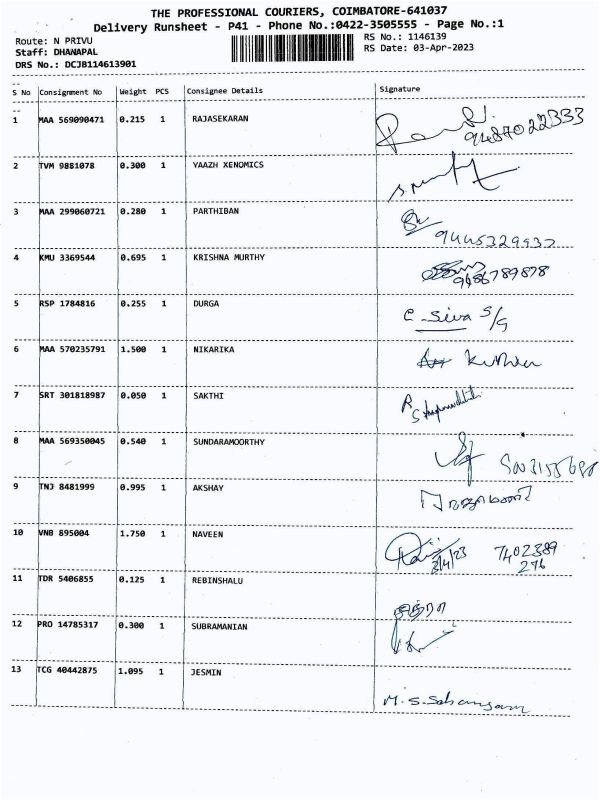 THE PROFESSIONAL COURIERS, COIMBATORE-641037
Delivery Runsheet - P41 - Phone No.:0422-3505555 - Page No.:1
Route: N PRIVU
RS No.: 1146139
Staff: DHANAPAL
RS Date: 03-Apr-2023
DRS No.: DCJB114613901
S No Consignment No Weight PCS Consignee Details Signature
1 MAA 569090471 0.215 1 RAJASEKARAN
9487022333
2 TVM 9881078 0.300 1 YAAZH XENOMICS
3 MAA 299060721 0.280 1 PARTHIBAN
4 KMU 3369544 0.695 1 KRISHNA MURTHY
9486789878
5 RSP 1784816 0.255 1 DURGA
C-Siva S/G
6 MAA 570235791 1.500 1 NIKARIKA
7 SRT 301818987 0.050 1 SAKTHI
8 MAA 569350045 0.540 1 SUNDARAMOORTHY
9 TNJ 8481999 0.995 1 AKSHAY
10 VNB 895004 1.750 1 NAVEEN
3/4/23 7402389
276
11 TDR 5406855 0.125 1 REBINSHALU
12 PRO 14785317 0.300 1 SUBRAMANIAN
13 TCG 40442875 1.095 1 JESMIN
M.S.